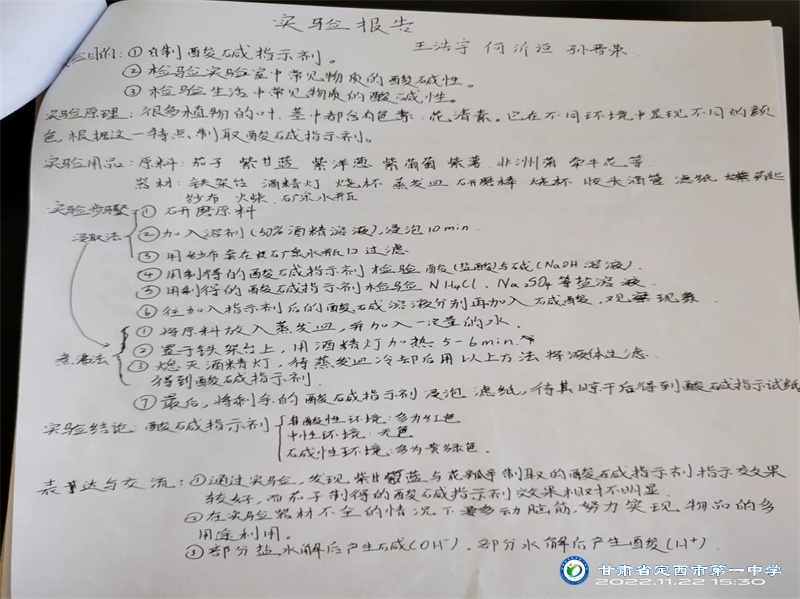 实验报告
王浩宇 何沂洹 孙晋荣
验目的: ①自制酸碱指示剂。
②检验实验室中常见物质的酸碱性。
③检验生活中常见物质的酸碱性。
实验原理: 很多植物的叶、茎中都含有色素、花清素。它在不同环境中显现不同的颜
色,根据这一特点,制取酸碱指示剂。
实验用品: 原料: 茄子 紫甘蓝 紫洋葱 紫葡萄 紫薯 非洲菊 牵牛花等
器材: 铁架台 酒精灯 烧杯 蒸发皿 研磨棒 烧杯 胶头滴管 滤纸
纱布 火柴 矿泉水瓶
实验步骤 ①研磨原料
浸取法 ②加入溶剂(50%酒精溶液),浸泡10min
③用纱布套在矿泉水瓶口过滤
④用制得的酸碱指示剂检验酸(盐酸)与碱(NaOH溶液)
⑤用制得的酸碱指示剂检验NH4Cl、Na2SO4等盐溶液
⑥往加入指示剂后的酸碱溶液分别再加入石碱酸,观察现象
①将原料放入蒸发皿,并加入一定量的水.
②置于铁架台上,用酒精灯加热5-6min.
蒸沸法 ③熄灭酒精灯,待蒸发皿冷却后用以上方法将液体过滤.
得到酸碱指示剂.
⑦最后,将剩余的酸碱指示剂浸泡滤纸,待其晾干后得到酸碱指示试纸
实验结论: 酸碱指示剂 酸性环境:多为红色
中性环境:无色
石碱性环境:多为黄绿色.
表达与交流: ①通过实验,发现紫甘蓝与花制取的酸碱指示剂指示效果
较好,而茄子制得的酸碱指示剂效果相对不明显.
②在实验器材不全的情况下要多动脑筋,努力实现物品的多
用途利用.
③部分盐水解后产生石碱(OH⁻),部分水解后产生酸(H⁺).
甘肃省定西市第一中学
2022.11.22 15:30